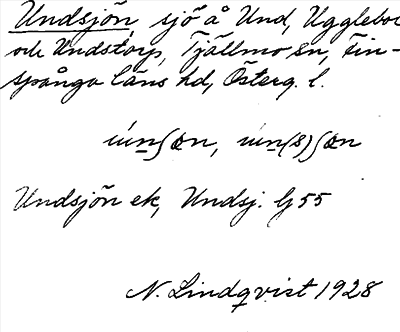 Undsjön, sjö å Und, Ugglebo
och Undstorp, Tjällmo sn, Fin-
spånga läns hd, Österg. l.
ún̲ʃɶn, ún̲(s)ʃɶn
Undsjön ek, Undsj. Gj 55
N. Lindqvist 1928